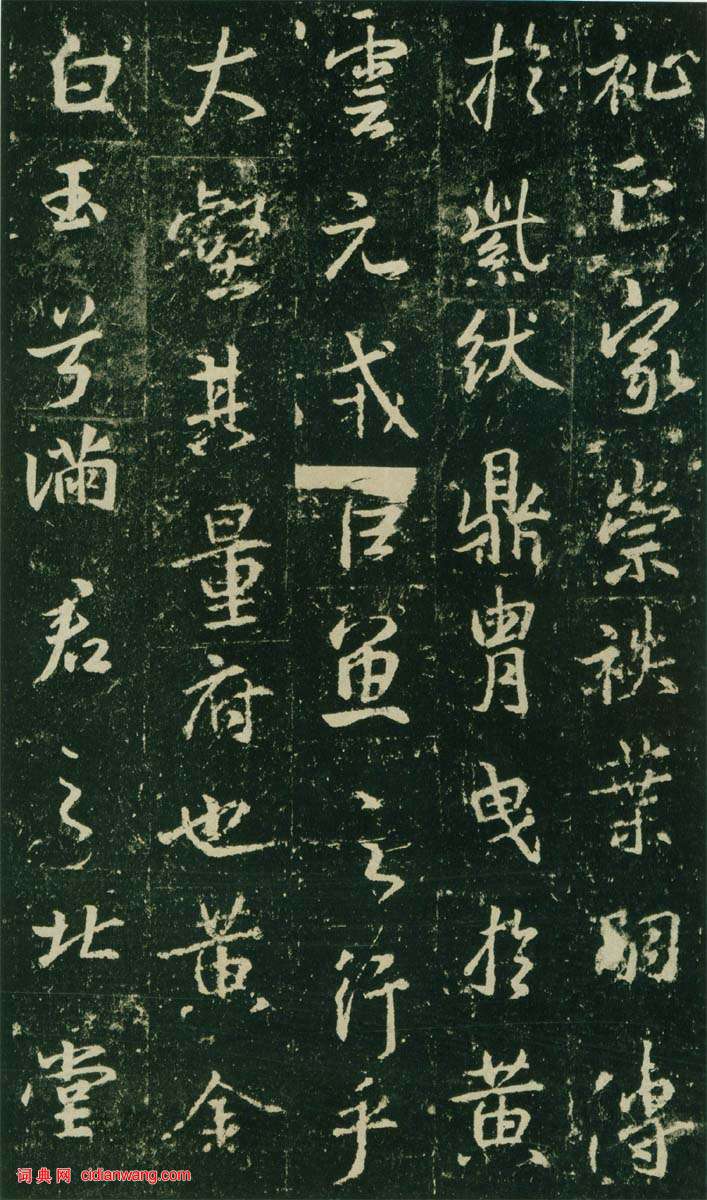 祉正家崇袟葉嗣傳
於紫紱鼎胄曳於黃
雲元戎巨魚之行乎
大壑其量府也黃金
白玉兮滿君之北堂
词典网 cidianwang.com